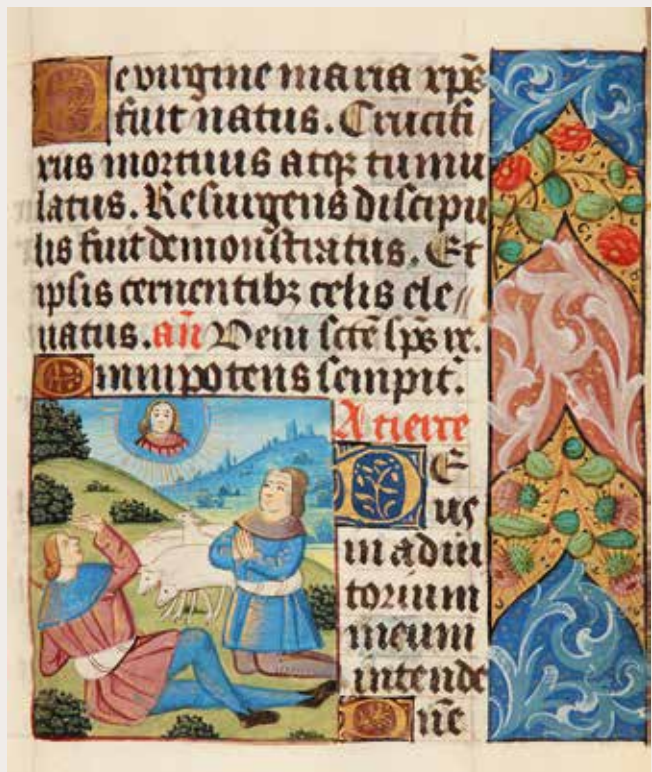 De virgine maria xp̄s
fuit natus. Crucifi
xus mortuus atqꝫ tumu
latus. Resurgens discipu
lis fuit demonstratus. Et
ipsis cernentibꝫ celis ele
uatus. añ Veni sctē sp̄s re.
Omnipotens sempit̄.
A tierce
DE
us
in adiu
torium
meum
intende
Dñe